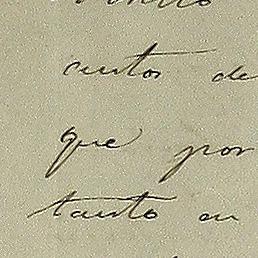 cuetos de
que por
tanto en